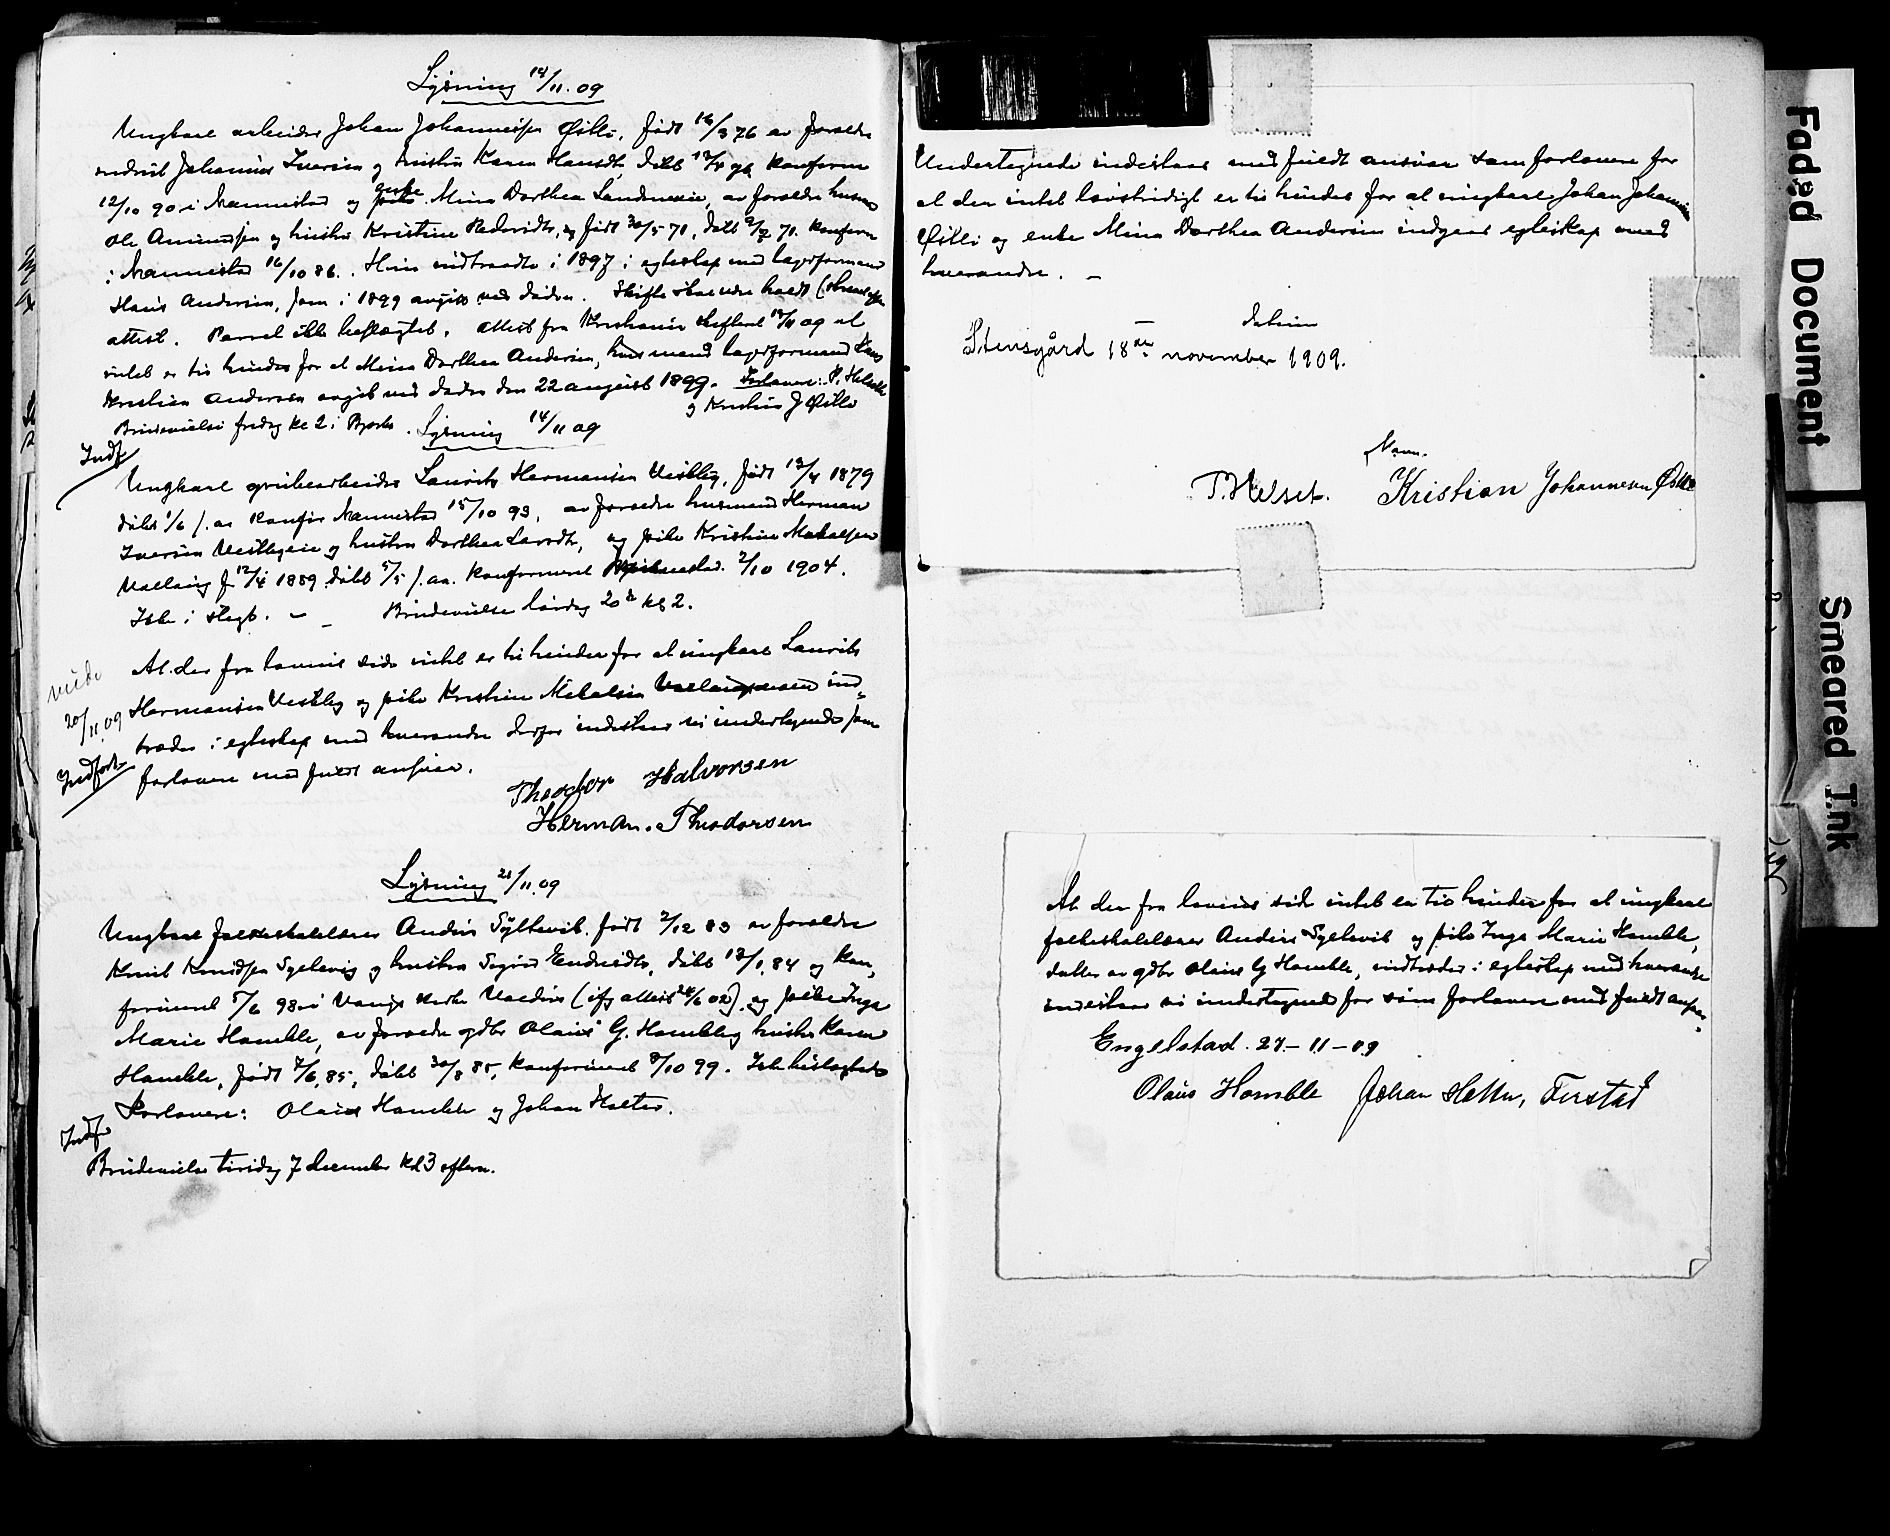 Lysning 14/11.09
Ungkarl arbeider Johan Johannessen Østli, født 16/3 76 av forældre
indrest Johannes Iversen og hustru Karen Hansdtr, døbt konform
12/10 90 i Mannestad og enke pike Mina Dorthea Sandnesseie, av forældre husm
Ole Amundsen og hustru Kristine Pedersdtr, og født 30/5 71, døbt 9/7 71. Konform
i Mannestad 16/10 86. Hun indtraadte i 1897 i egteskap med lagerformand
Hans Andersen, som i 1899 avgik ved døden. Skifte skal være holdt
attest. Parret ikke beslægtet. Attest fra Kristiania skifteret 12/11 09 at
intet er til hinder for at Mina Dorthea Andersen, hvis mand lagerformand Hans
Kristian Andersen avgik ved døden den 22 august 1899. Forlovere: P. Helseth
og Kristian J Østli
Brudevielse fredag kl 2 i Bjørke. Lysning 14/11 09
Indf
Ungkarl grubearbeider Laurits Hermansen Vestbg, født 13/4 1879
døbt 1/6 s. aa konfir Mannestad 15/10 93, av forældre husmand Herman
Iversen Vestbyeie og hustru Dorthea Larsdtr, og pike Kristine Mekalsen
Vallang f 12/4 1889 døbt 5/5 s. aa. Konformeret 2/10 1904.
Ikke i slegt. – – Brudevielse lørdag 20de kl 2.
viede
20/11.09
Indført
At der fra lovens side intet er til hinder for at ungkarl Laurits
Hermansen Vestby og pike Kristine Mekalsen ind-
træder i egteskap med hverandre derfor indestaar vi undertegnede som
forlovere med fuldt ansvar.
Theodor Halvorsen
Herman. Theodorsen
Lysning 21/11.09
Ungkarl folkeskolelærer Anders Syltevik. født 2/12 83 av forældre
Knut Knudsen Syltevig og hustru Sigrid Endresdtr, døbt 13/1 84 og kon,
firmeret 5/6 98 i Vangs kirke Valdres (ifg attest 24/6 02), og pike Inga
Marie Homble, av forældre gdbr Olaus G. Homble og hustru Karen
Homble, født 7/6 85, døbt 30/8 85, konfirmeret 8/10 99. Ikke beslægtede
Forlovere: Olaus Homble og Johan Holter.
Indf
Brudevielse tirsdag 7 december kl 3 eftern.
Undertegnede indestaar med fuldt ansvar som forlovere for
at der intet lovstridigt er til hinder for at ungkarl Johan Johannessen
Østli og enke Mina Dorthea Andersen indgaar egteskap med
hverandre. –
datum
Stensgård 18de november 1909.
Navn.
P. Helset. Kristian Johannesen Østli
At der fra lovens side intet er til hinder for at ungkarl
folkeskolelærer Anders Syltevik og pike Inga Marie Homble,
datter av gdbr Olaus G Homble, indtræder i egteskap med hverandre
indestaar vi undertegnede for som forlovere med fuldt ansvar.
Engelstad. 27–11–09
Olaus Homble Johan Holter, Ferstad
Faded Document
Smeared Ink